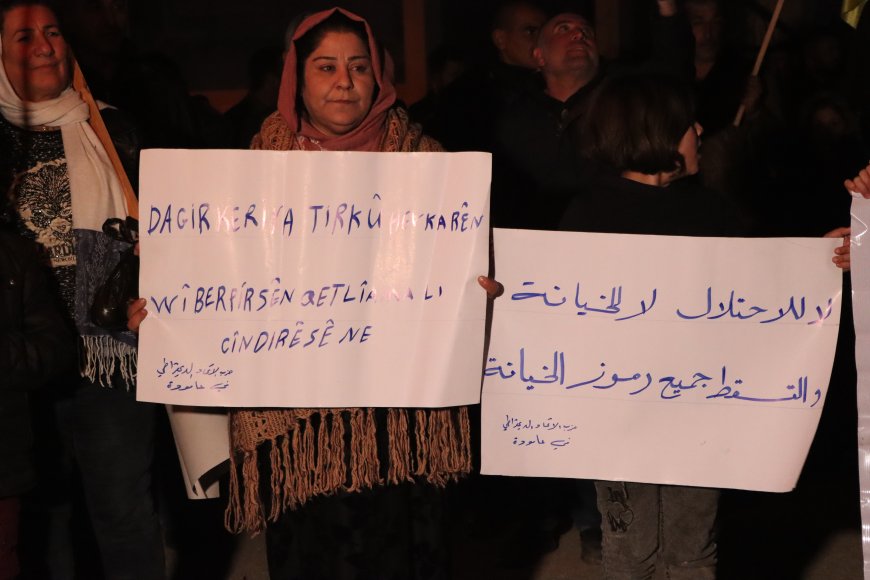 DAGIRKERIYA TIRKÛ HEVKARÊN
WÎ BERPIRSÊN QETLÎAMA LI
CÎNDIRÊSÊ NE
حزب الاتحاد الديمقراطي
في عامودة
لا للاحتلال لا للخيانة
والتسقط جميع رموز الخيانة
حزب الاتحاد الديمقراطي
في عامودة